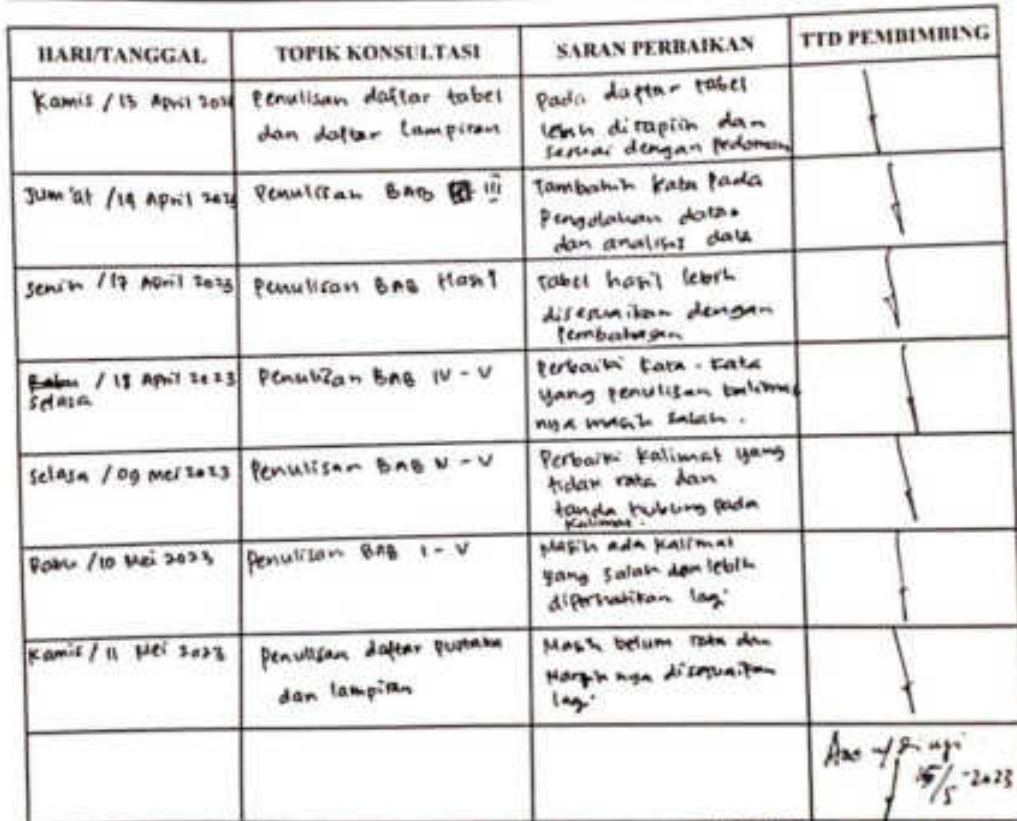 HARI/TANGGAL
TOPIK KONSULTASI
SARAN PERBAIKAN
TTD PEMBIMBING
Kamis / 13 April 2023
Penulisan daftar tabel
dan daftar lampiran
Pada daftar tabel
lebih dirapiin dan
sesuai dengan pedoman
Jum'at / 14 April 2023
Penulisan BAB III
Tambahin kata pada
Pengolahan data
dan analisis data
Senin / 17 April 2023
Penulisan BAB Hasil
Tabel hasil lebih
disesuaikan dengan
Pembahasan
/ 18 April 2023
Selasa
Penulisan BAB IV - V
Perbaiki kata - kata
yang penulisan
nya masih salah .
Selasa / 09 Mei 2023
Penulisan BAB IV - V
Perbaiki kalimat yang
tidak rata dan
tanda hubung pada
kalimat.
Rabu / 10 Mei 2023
Penulisan BAB I - V
Masih ada kalimat
yang salah dan lebih
diperhatikan lagi
Kamis / 11 Mei 2023
Penulisan daftar pustaka
dan lampiran
Masih belum rata dan
Margin nya disesuaikan
lagi
15/5-2023